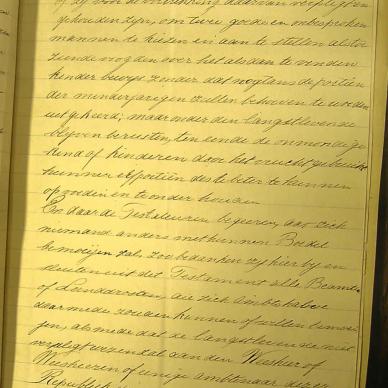 of zij voor de uitreiking daarvan verpligten
gehouden zyn, om twee goede en onbesproken
mannen te kiezen en aan te stellen als toe
ziende voogden over het als dan te vinden
kinder bewys zonder dat nogtans de portien
der minderjarigen zullen behoeven te worden
uitgekeerd; maar onder den langstlevende
blyven berusten, ten einde de onmondige
kind of kinderen door het vruchtgebruik
hunner portien des te beter te kunnen
opvoeden en te onderhouden
En daar de Testateuren begeeren, dat zich
niemand anders met hunnen Boedel
bemoeijen zal, zoo bedanken zy hier by en
sluiten uit dit Testament alle
of Landdrosten, die zich
daarmede zouden kunnen of willen bemoei
jen, als mede dat de langstlevende niet
verpligt wezen zal aan den Weesheer of
Weesheeren of eenige ambtenaar dezer
Republiek